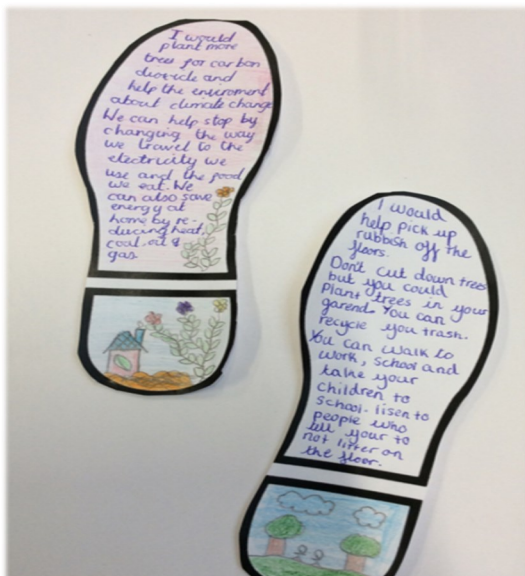 I would
plant more
trees for carbon
dioxide and
help the enviroment
about climate change
We can help stop by
changing the way
we travel to the
electricity we
use and the food
we eat. We
can also save
energy at
home by re-
ducing heat,
coal, oil &
gas
I would
help pick up
rubbish off the
floors.
Don't cut down trees
but you could
Plant trees in your
garend. You can
recycle you trash.
You can walk to
work, school and
take your
children to
school. lisen to
people who
tell your to
not litter on
the floor.